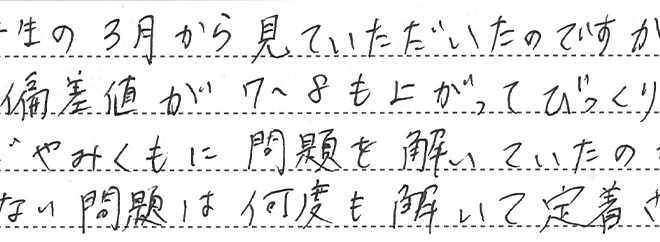 生の3月から見ていただいたのですが
偏差値が7〜8も上がってびっくり
やみくもに問題を解いていたの
ない問題は何度も解いて定着さ